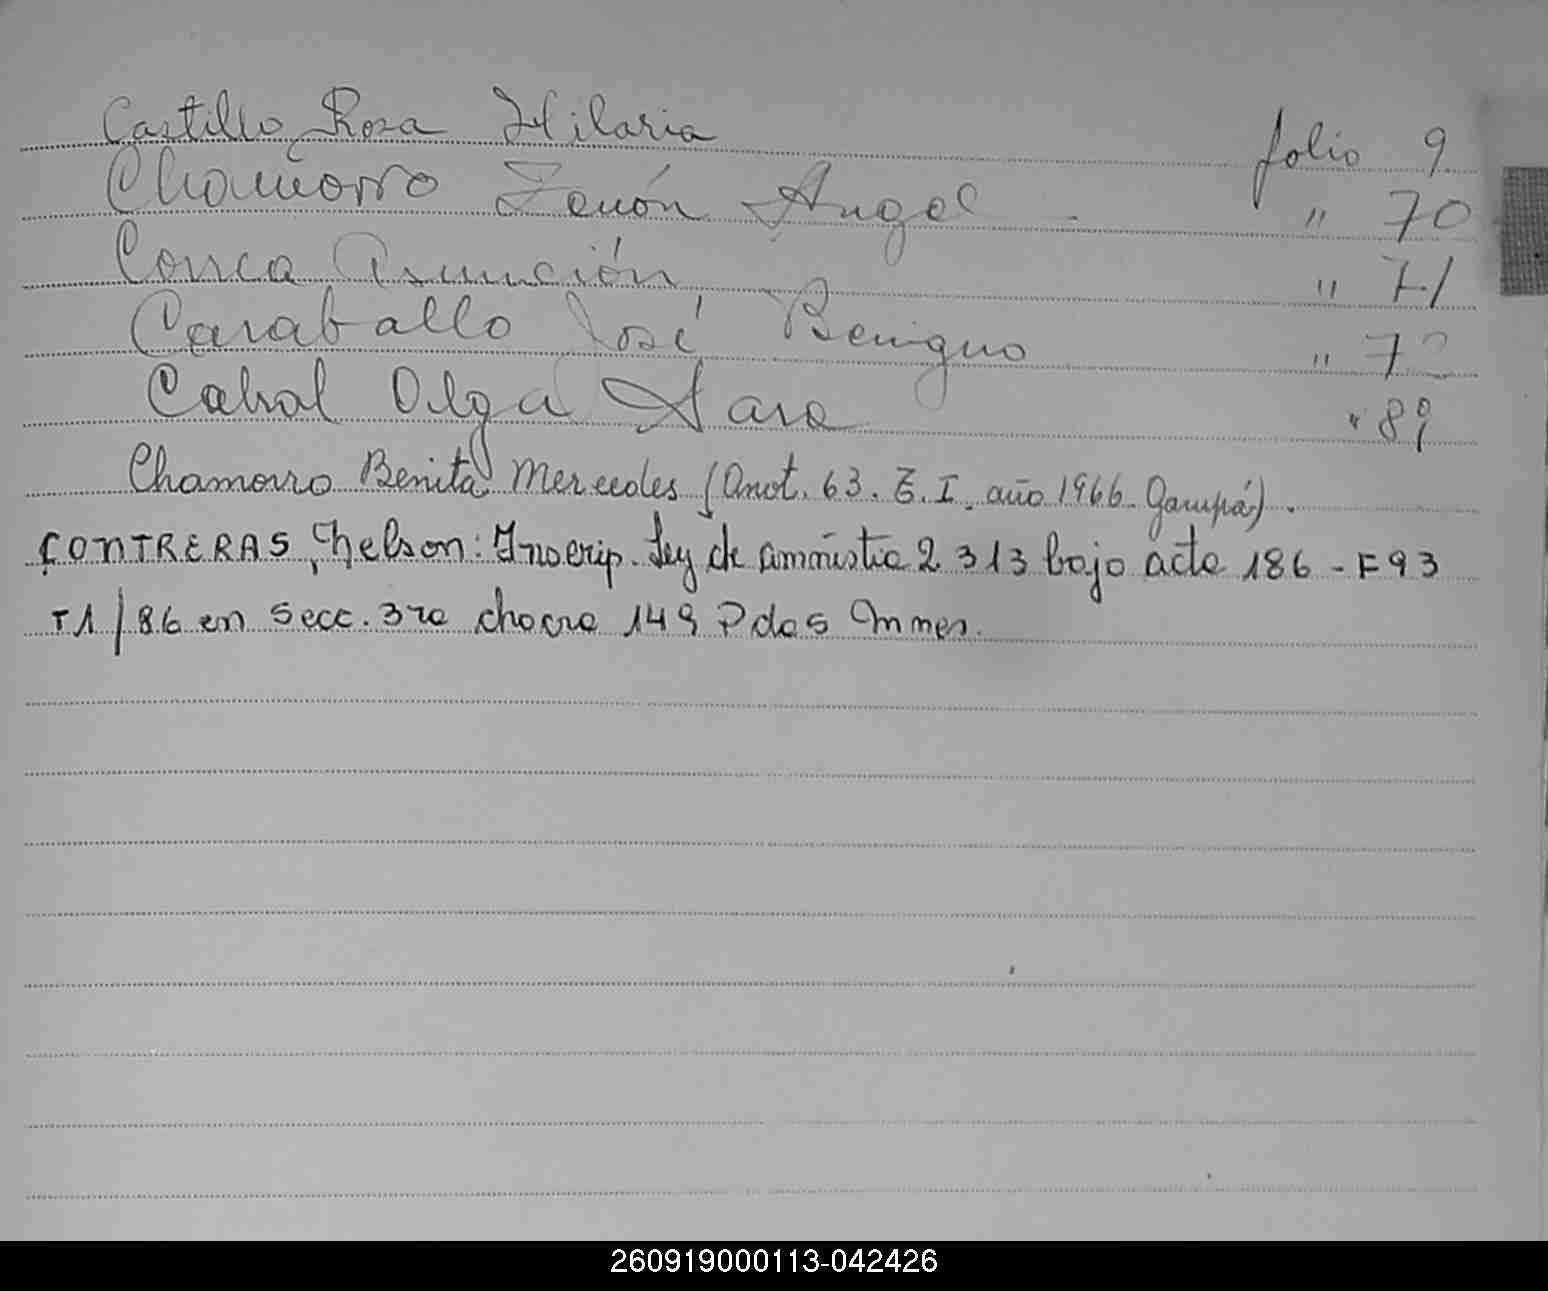 Castillo Rosa Hilaria folio 9
Chamorro Zenón Angel " 70
Correa Asunción " 71
Caraballo José Benigno " 72
Cabral Olga Sara " 89
Chamorro Benita Mercedes (Anot. 63. T. I. año 1966. Garupá).
CONTRERAS, Nelson: Inscrip. Ley de amnistia 2 313 bajo acta 186 - F 93
T1/86 en Secc. 3ra chacra 149 Pdas Mnes.
260919000113-042426